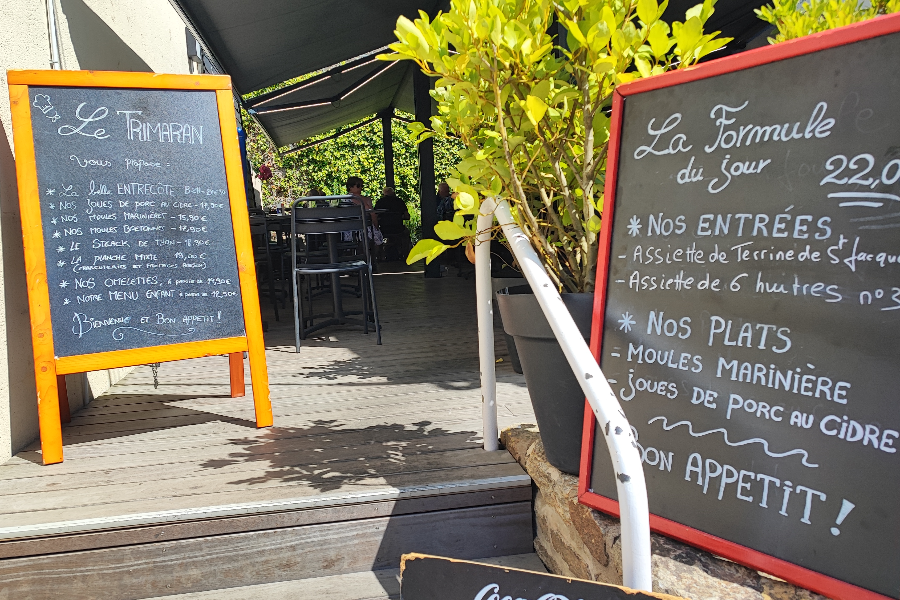 Le TRIMARAN
Vous propose :
* La belle ENTRECÔTE
* NOS JOUES DE PORC AU CIDRE - 17,90€
* NOS MOULES MARINIÈRES - 15,90€
* NOS MOULES BRETONNES - 17,90€
* LE STEACK DE THON - 18,90€
* LA PLANCHE MIXTE 19,00€
* NOS OMELETTES, à partir de
* NOTRE MENU ENFANT à partir de 12,50€
Bienvenue ET BON APPETIT !
La Formule
du jour
22,0
* NOS ENTRÉES
- Assiette de Terrine de St Jacque
- Assiette de 6 huitres n°3
* NOS PLATS
- MOULES MARINIÈRE
- JOUES DE PORC AU CIDRE
BON APPETIT !
Coca-Cola